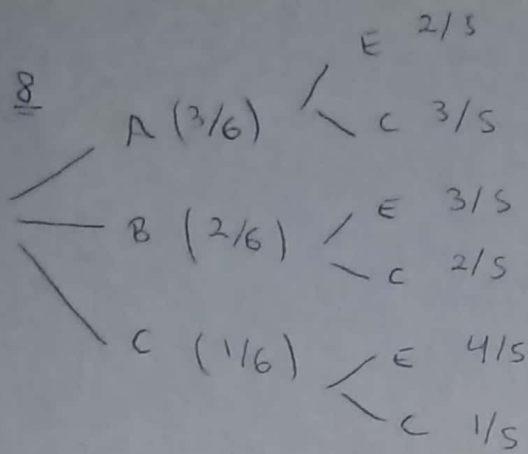 8
A (3/6)
E 2/5
C 3/5
B (2/6)
E 3/5
C 2/5
C (1/6)
E 4/5
C 1/5